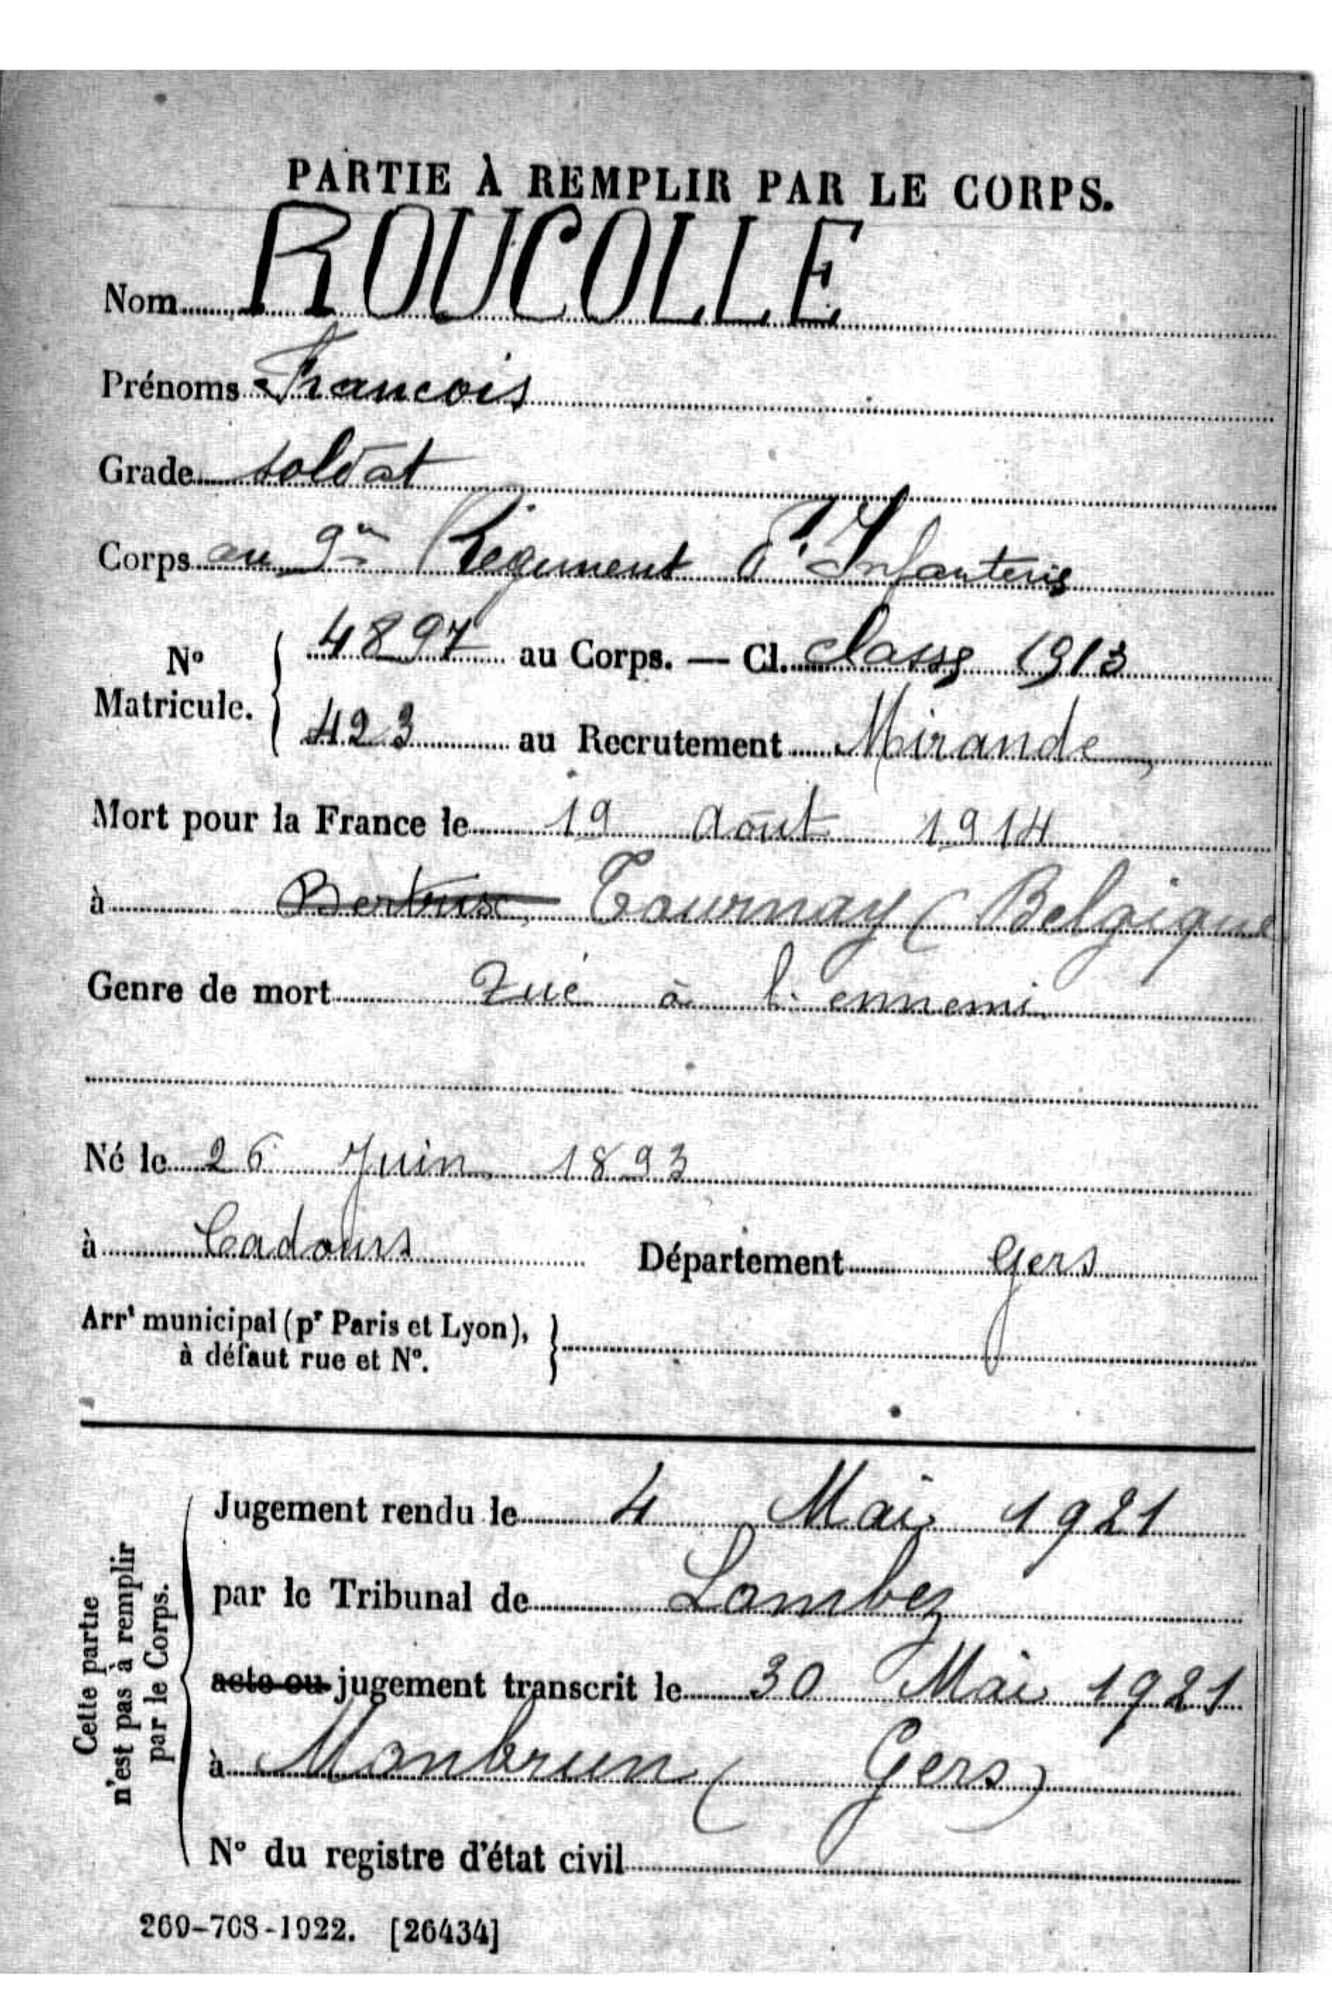 PARTIE À REMPLIR PAR LE CORPS.
Nom ROUCOLLE
Prénoms Francois
Grade soldat
Corps au 9me Régiment d'Infanterie
No Matricule. 4897 au Corps. — Cl. classe 1913
423 au Recrutement Mirande
Mort pour la France le 19 Août 1914
à Tournay (Belgique
Genre de mort Tué à l'ennemi
Né le 26 Juin 1893
à Cadours Département Gers
Arrt municipal (pr Paris et Lyon),
à défaut rue et No.
Cette partie
n'est pas à remplir
par le Corps.
Jugement rendu le 4 Mai 1921
par le Tribunal de Lombez
acte ou jugement transcrit le 30 Mai 1921
à Monbrun (Gers)
No du registre d'état civil
269-708-1922. [26434]